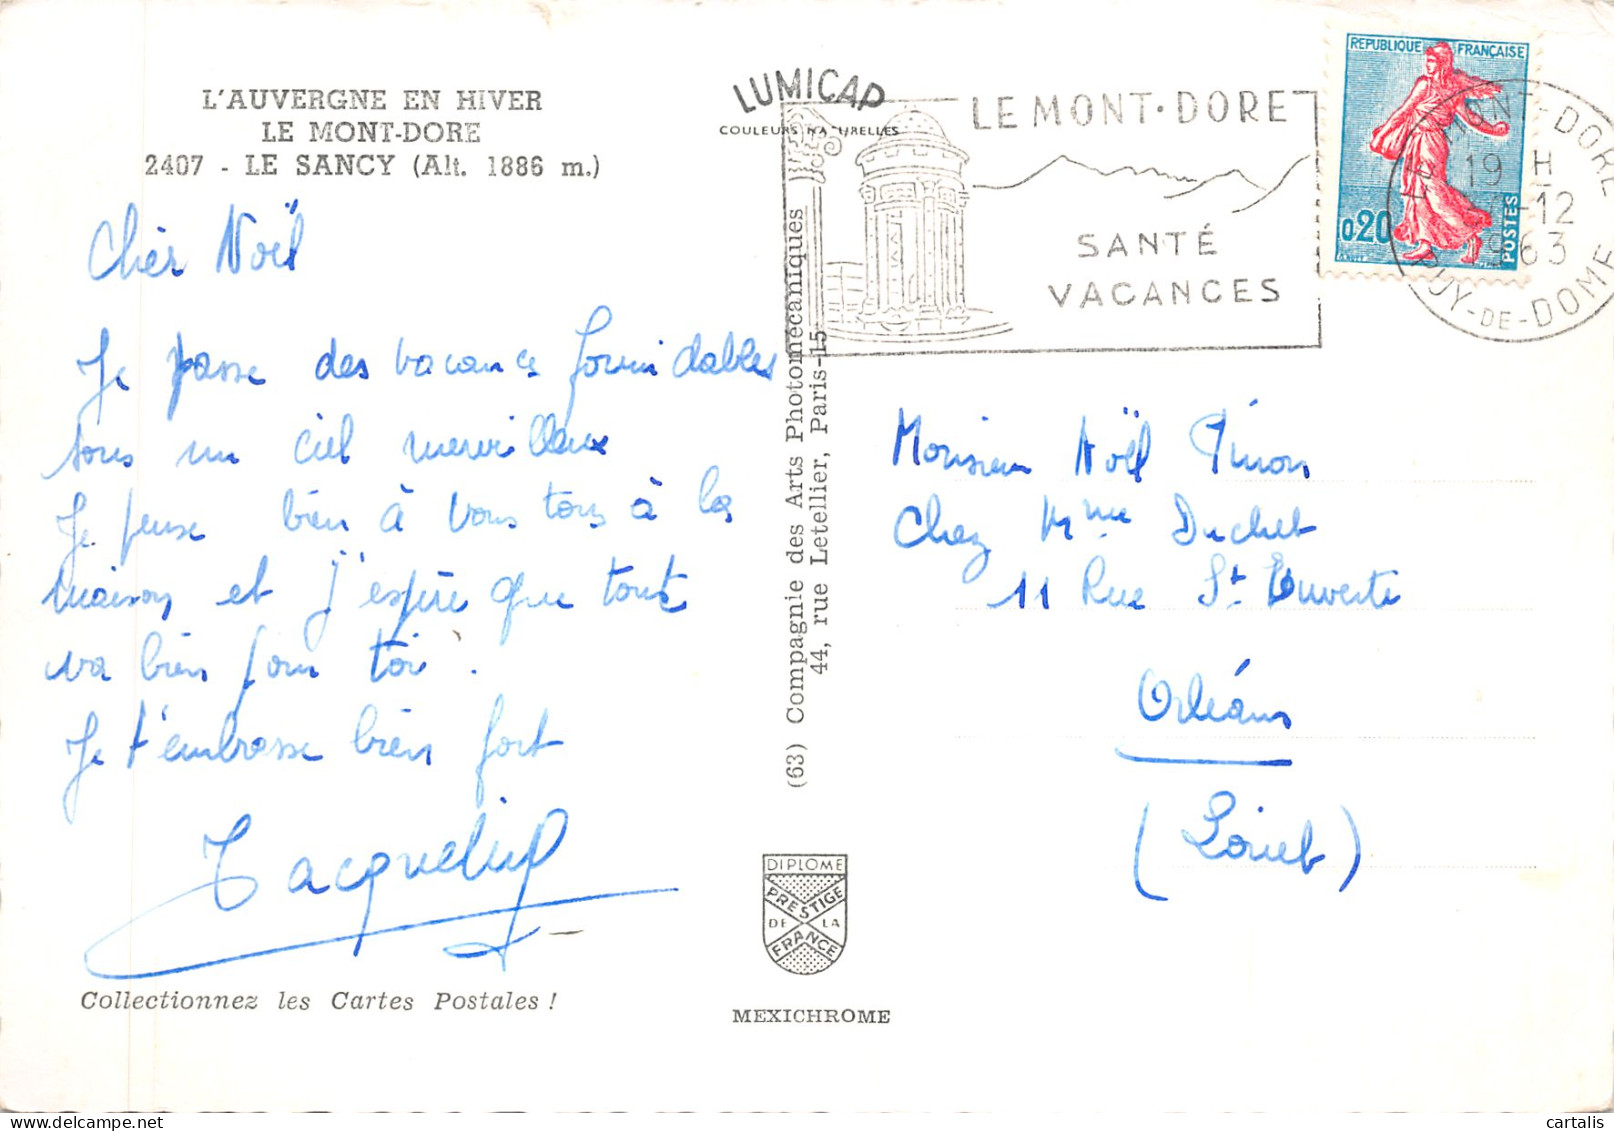 L'AUVERGNE EN HIVER
LE MONT-DORE
2407 - LE SANCY (Alt. 1886 m.)
Chèr Noël
Je passe des vacances formidables
sous un ciel merveilleux
Je pense bien à vous tous à la
maison et j'espère que tout
va bien pour toi.
Je t'embrasse bien fort
Jacqueline
Collectionnez les Cartes Postales !
LUMICAP
COULEURS NATURELLES
(63) Compagnie des Arts Photomécaniques
44, rue Letellier, Paris-15
DIPLOME
PRESTIGE
DE LA
FRANCE
MEXICHROME
LE MONT-DORE
SANTÉ
VACANCES
REPUBLIQUE FRANÇAISE
0,20
POSTES
LE MONT-DORE
19 H
-12
1963
PUY-DE-DOME
Monsieur Noël Pinon
Chez Mme Duchet
11 Rue St Euverte
Orléans
(Loiret)
cartalis